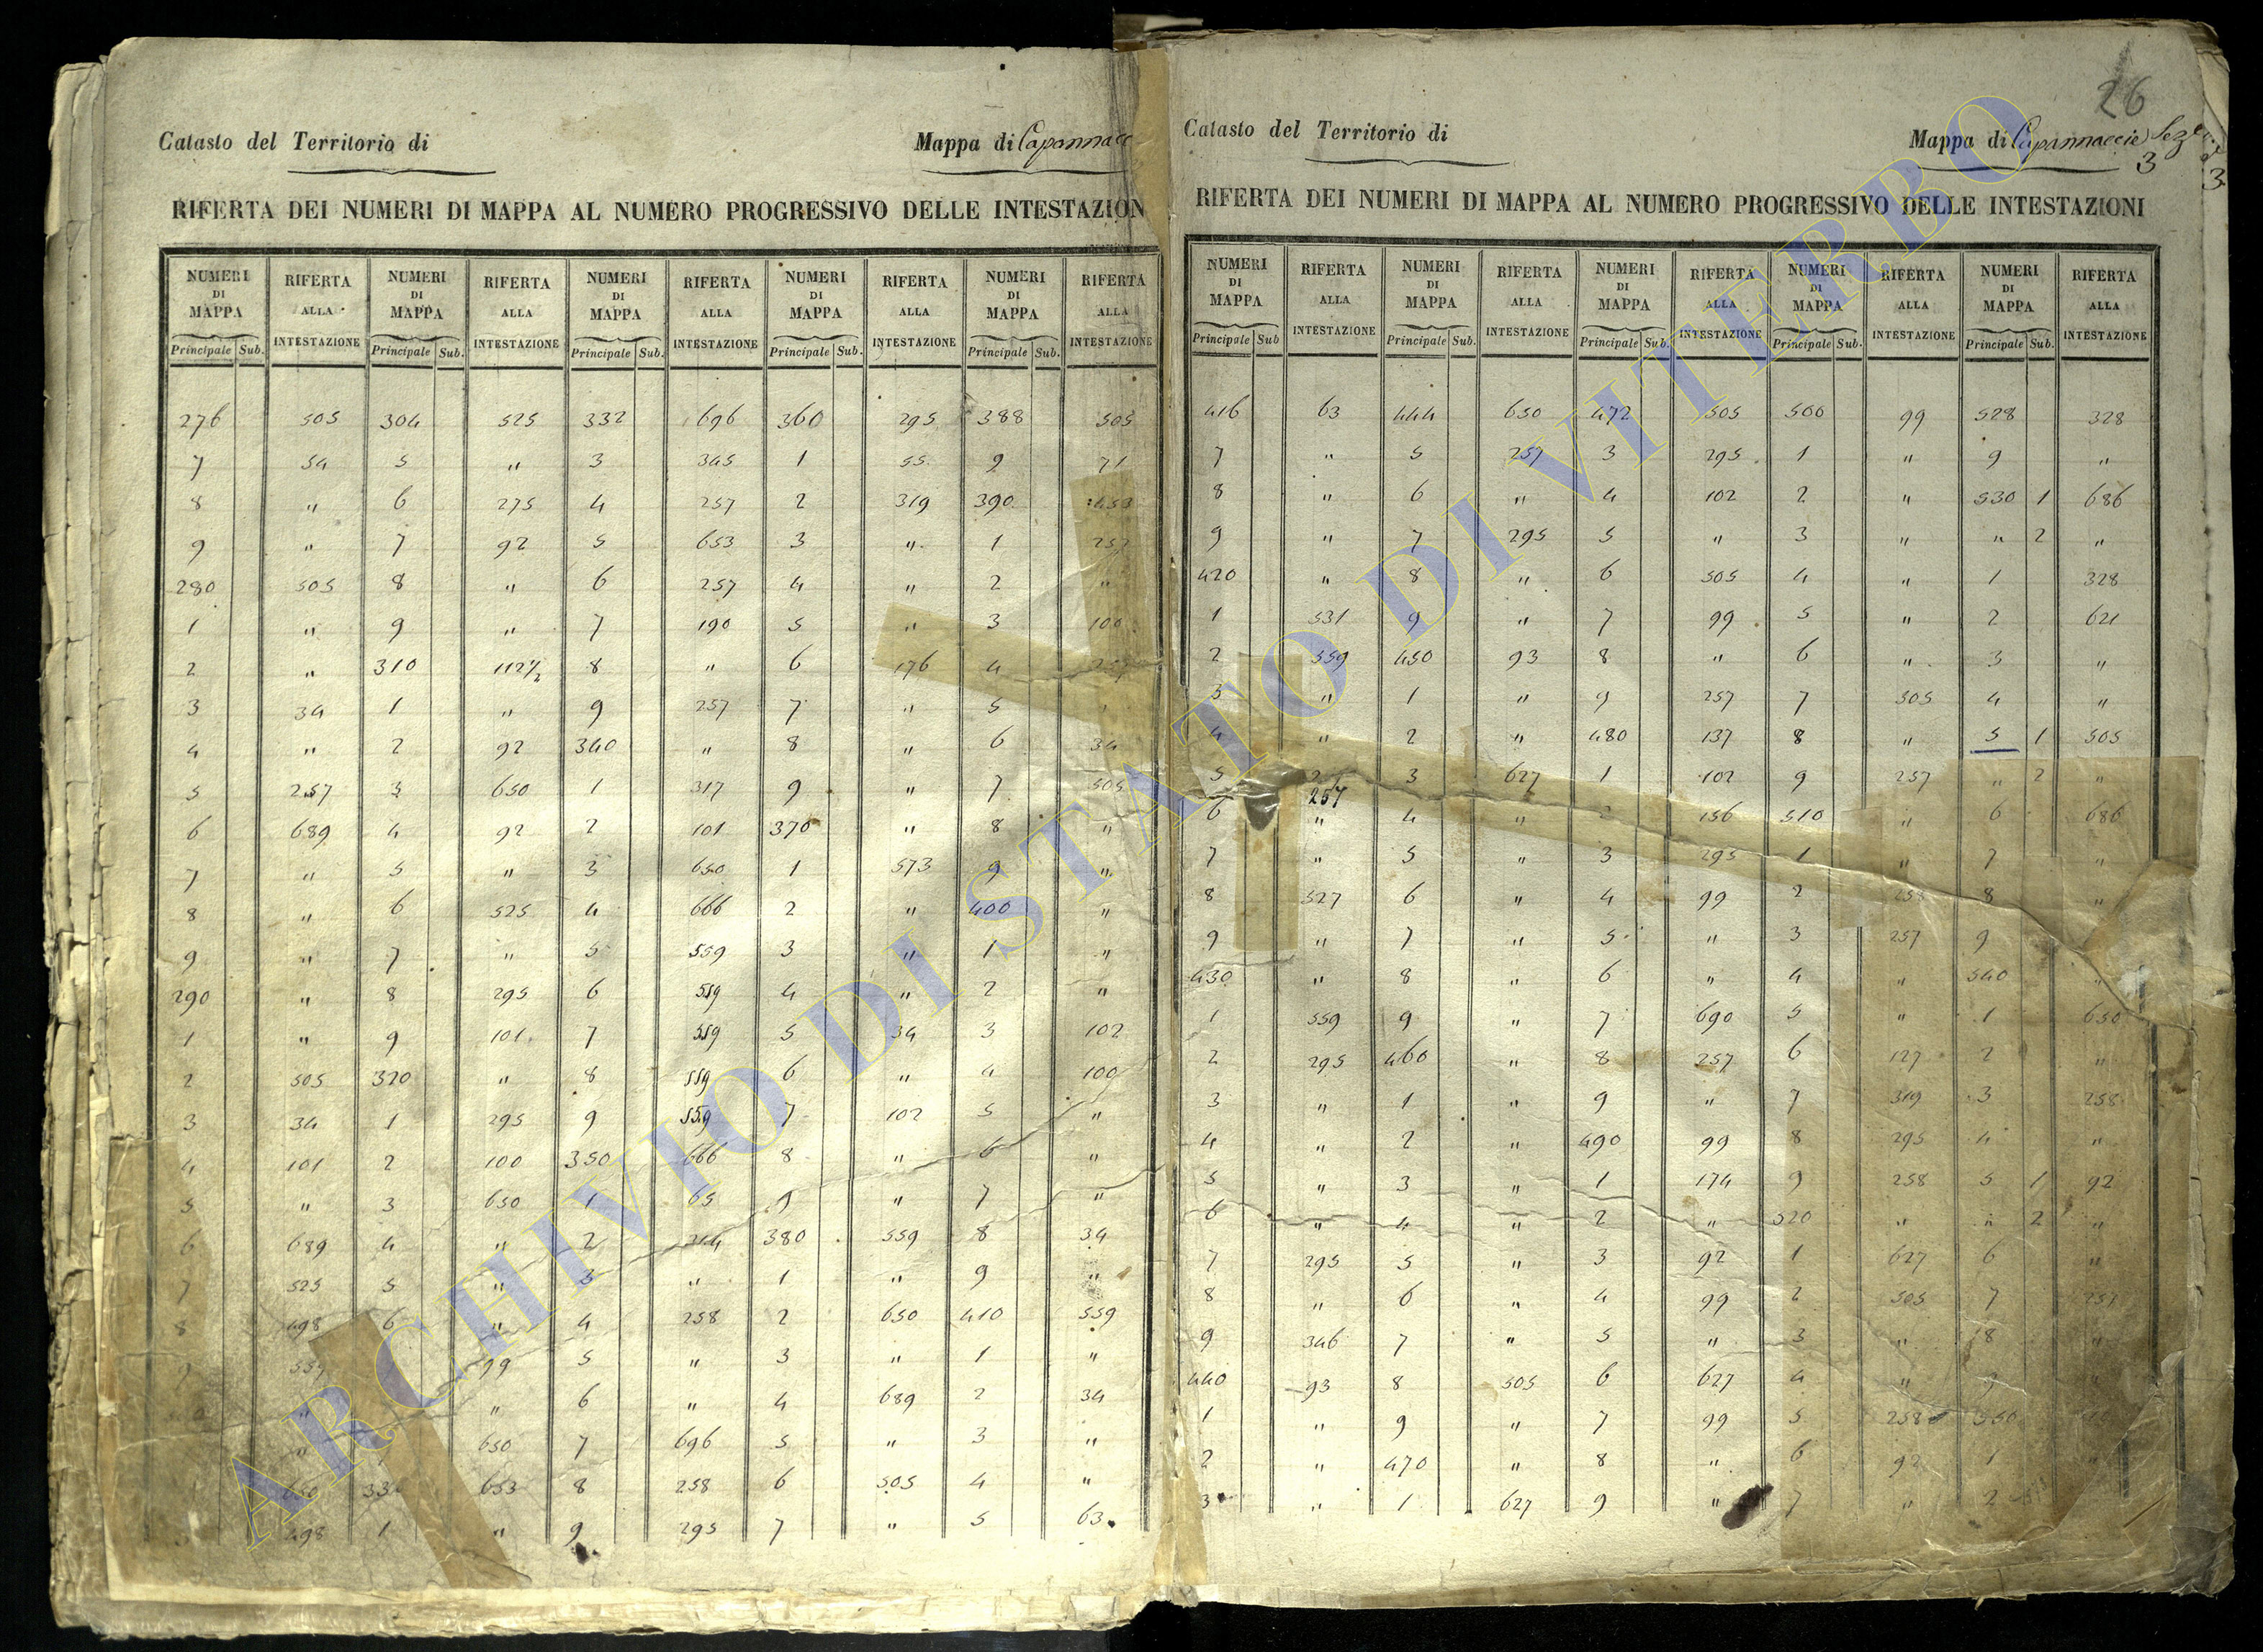 Catasto del Territorio di
Mappa di Capannacc
RIFERTA DEI NUMERI DI MAPPA AL NUMERO PROGRESSIVO DELLE INTESTAZION
NUMERI DI MAPPA RIFERTA ALLA INTESTAZIONE NUMERI DI MAPPA RIFERTA ALLA INTESTAZIONE NUMERI DI MAPPA RIFERTA ALLA INTESTAZIONE NUMERI DI MAPPA RIFERTA ALLA INTESTAZIONE NUMERI DI MAPPA RIFERTA ALLA INTESTAZIONE
Principale Sub. Principale Sub. Principale Sub. Principale Sub. Principale Sub.
276 505 304 525 332 696 360 295 388 505
7 34 5 " 3 345 1 55 9 71
8 " 6 275 4 257 2 319 390 453
9 " 7 92 5 653 3 " 1 257
280 505 8 " 6 257 4 " 2 "
1 " 9 " 7 190 5 " 3 100
2 " 310 112½ 8 " 6 176 4 257
3 34 1 " 9 257 7 " 5 "
4 " 2 92 340 " 8 " 6 34
5 257 3 650 1 317 9 " 7 505
6 689 4 92 2 101 370 " 8 "
7 " 5 " 3 650 1 573 9 "
8 " 6 525 4 666 2 " 400 "
9 " 7 " 5 559 3 " 1 "
290 " 8 295 6 559 4 " 2 "
1 " 9 101 7 559 5 34 3 102
2 505 320 " 8 559 6 " 4 100
3 34 1 295 9 559 7 102 5 "
4 101 2 100 350 666 8 " 6 "
5 " 3 650 1 65 9 " 7 "
6 689 4 " 2 314 380 559 8 34
7 525 5 " 3 " 1 " 9 "
8 498 6 " 4 258 2 650 410 559
9 559 99 5 " 3 " 1 "
" " 6 " 4 689 2 34
" 650 7 696 5 " 3 "
650 330 653 8 258 6 505 4 "
498 1 " 9 295 7 " 5 63
26
Catasto del Territorio di
Mappa di Capannaccie Sez.e 3
3
RIFERTA DEI NUMERI DI MAPPA AL NUMERO PROGRESSIVO DELLE INTESTAZIONI
NUMERI DI MAPPA RIFERTA ALLA INTESTAZIONE NUMERI DI MAPPA RIFERTA ALLA INTESTAZIONE NUMERI DI MAPPA RIFERTA ALLA INTESTAZIONE NUMERI DI MAPPA RIFERTA ALLA INTESTAZIONE NUMERI DI MAPPA RIFERTA ALLA INTESTAZIONE
Principale Sub Principale Sub. Principale Sub. Principale Sub. Principale Sub.
416 63 444 650 472 505 500 99 528 328
7 " 5 257 3 295 1 " 9 "
8 " 6 " 4 102 2 " 530 1 686
9 " 7 295 5 " 3 " " 2 "
420 " 8 " 6 505 4 " 1 328
1 531 9 " 7 99 5 " 2 621
2 559 450 93 8 " 6 " 3 "
3 " 1 " 9 257 7 505 4 "
4 " 2 " 480 137 8 " 5 1 505
5 257 3 627 1 102 9 257 " 2 "
6 " 4 " 2 156 510 " 6 686
7 " 5 " 3 295 1 " 7 "
8 527 6 " 4 99 2 258 8 "
9 " 7 " 5 " 3 257 9
430 " 8 " 6 " 4 " 540 "
1 559 9 " 7 690 5 " 1 650
2 295 460 " 8 257 6 127 2 "
3 " 1 " 9 " 7 319 3 258
4 " 2 " 490 99 8 295 4 "
5 " 3 " 1 174 9 258 5 1 92
6 " 4 " 2 " 520 " " 2 "
7 295 5 " 3 92 1 627 6 "
8 " 6 " 4 99 2 505 7 257
9 346 7 " 5 " 3 " 8 "
440 93 8 505 6 627 4 " 9 "
1 " 9 " 7 99 5 258 550
2 " 470 " 8 " 6 92 1 "
3 " 1 627 9 " 7 " 2
ARCHIVIO DI STATO DI VITERBO